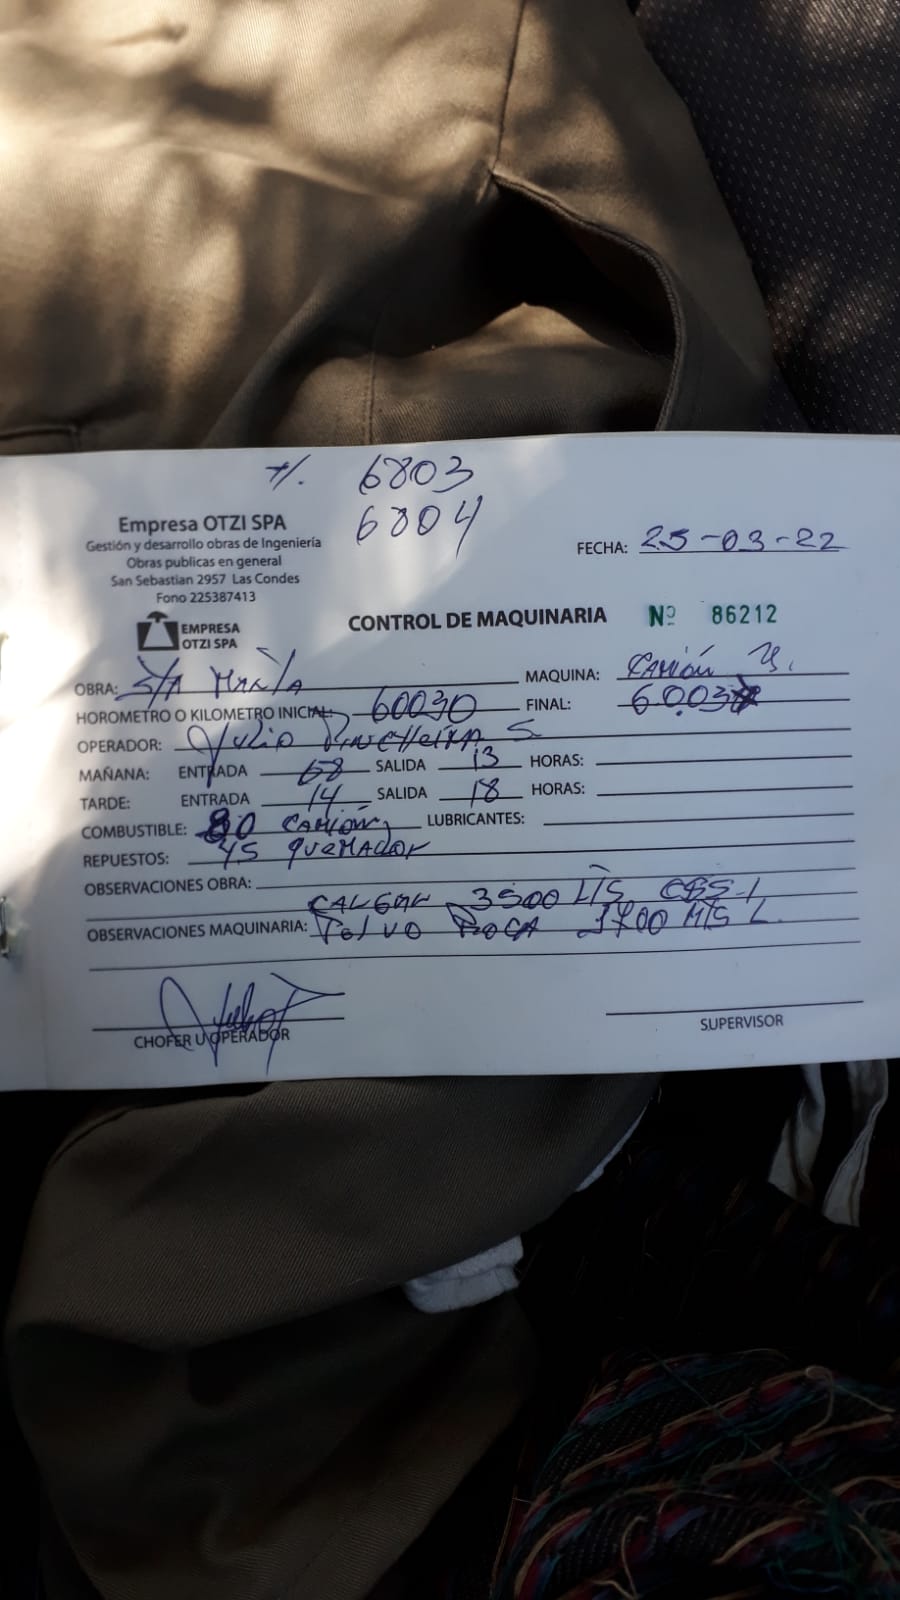 T/. 6803
6804
Empresa OTZI SPA
Gestión y desarrollo obras de Ingeniería
Obras publicas en general
San Sebastian 2957 Las Condes
Fono 225387413
FECHA: 25-03-22
EMPRESA
OTZI SPA
CONTROL DE MAQUINARIA Nº 86212
OBRA: S/A MARIA MAQUINA: CAMIÓN
HOROMETRO O KILOMETRO INICIAL: 60030 FINAL:
OPERADOR: JULIO S
MAÑANA: ENTRADA 08 SALIDA 13 HORAS:
TARDE: ENTRADA 14 SALIDA 18 HORAS:
COMBUSTIBLE: 80 CAMIÓN LUBRICANTES:
REPUESTOS: 45 QUEMADOR
OBSERVACIONES OBRA:
3500 LTS CSS-1
OBSERVACIONES MAQUINARIA: POLVO ROCA MTS L.
CHOFER U OPERADOR
SUPERVISOR